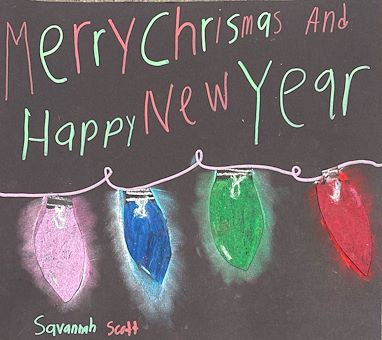 Merry Chrismas And
Happy New Year
Savannah Scott